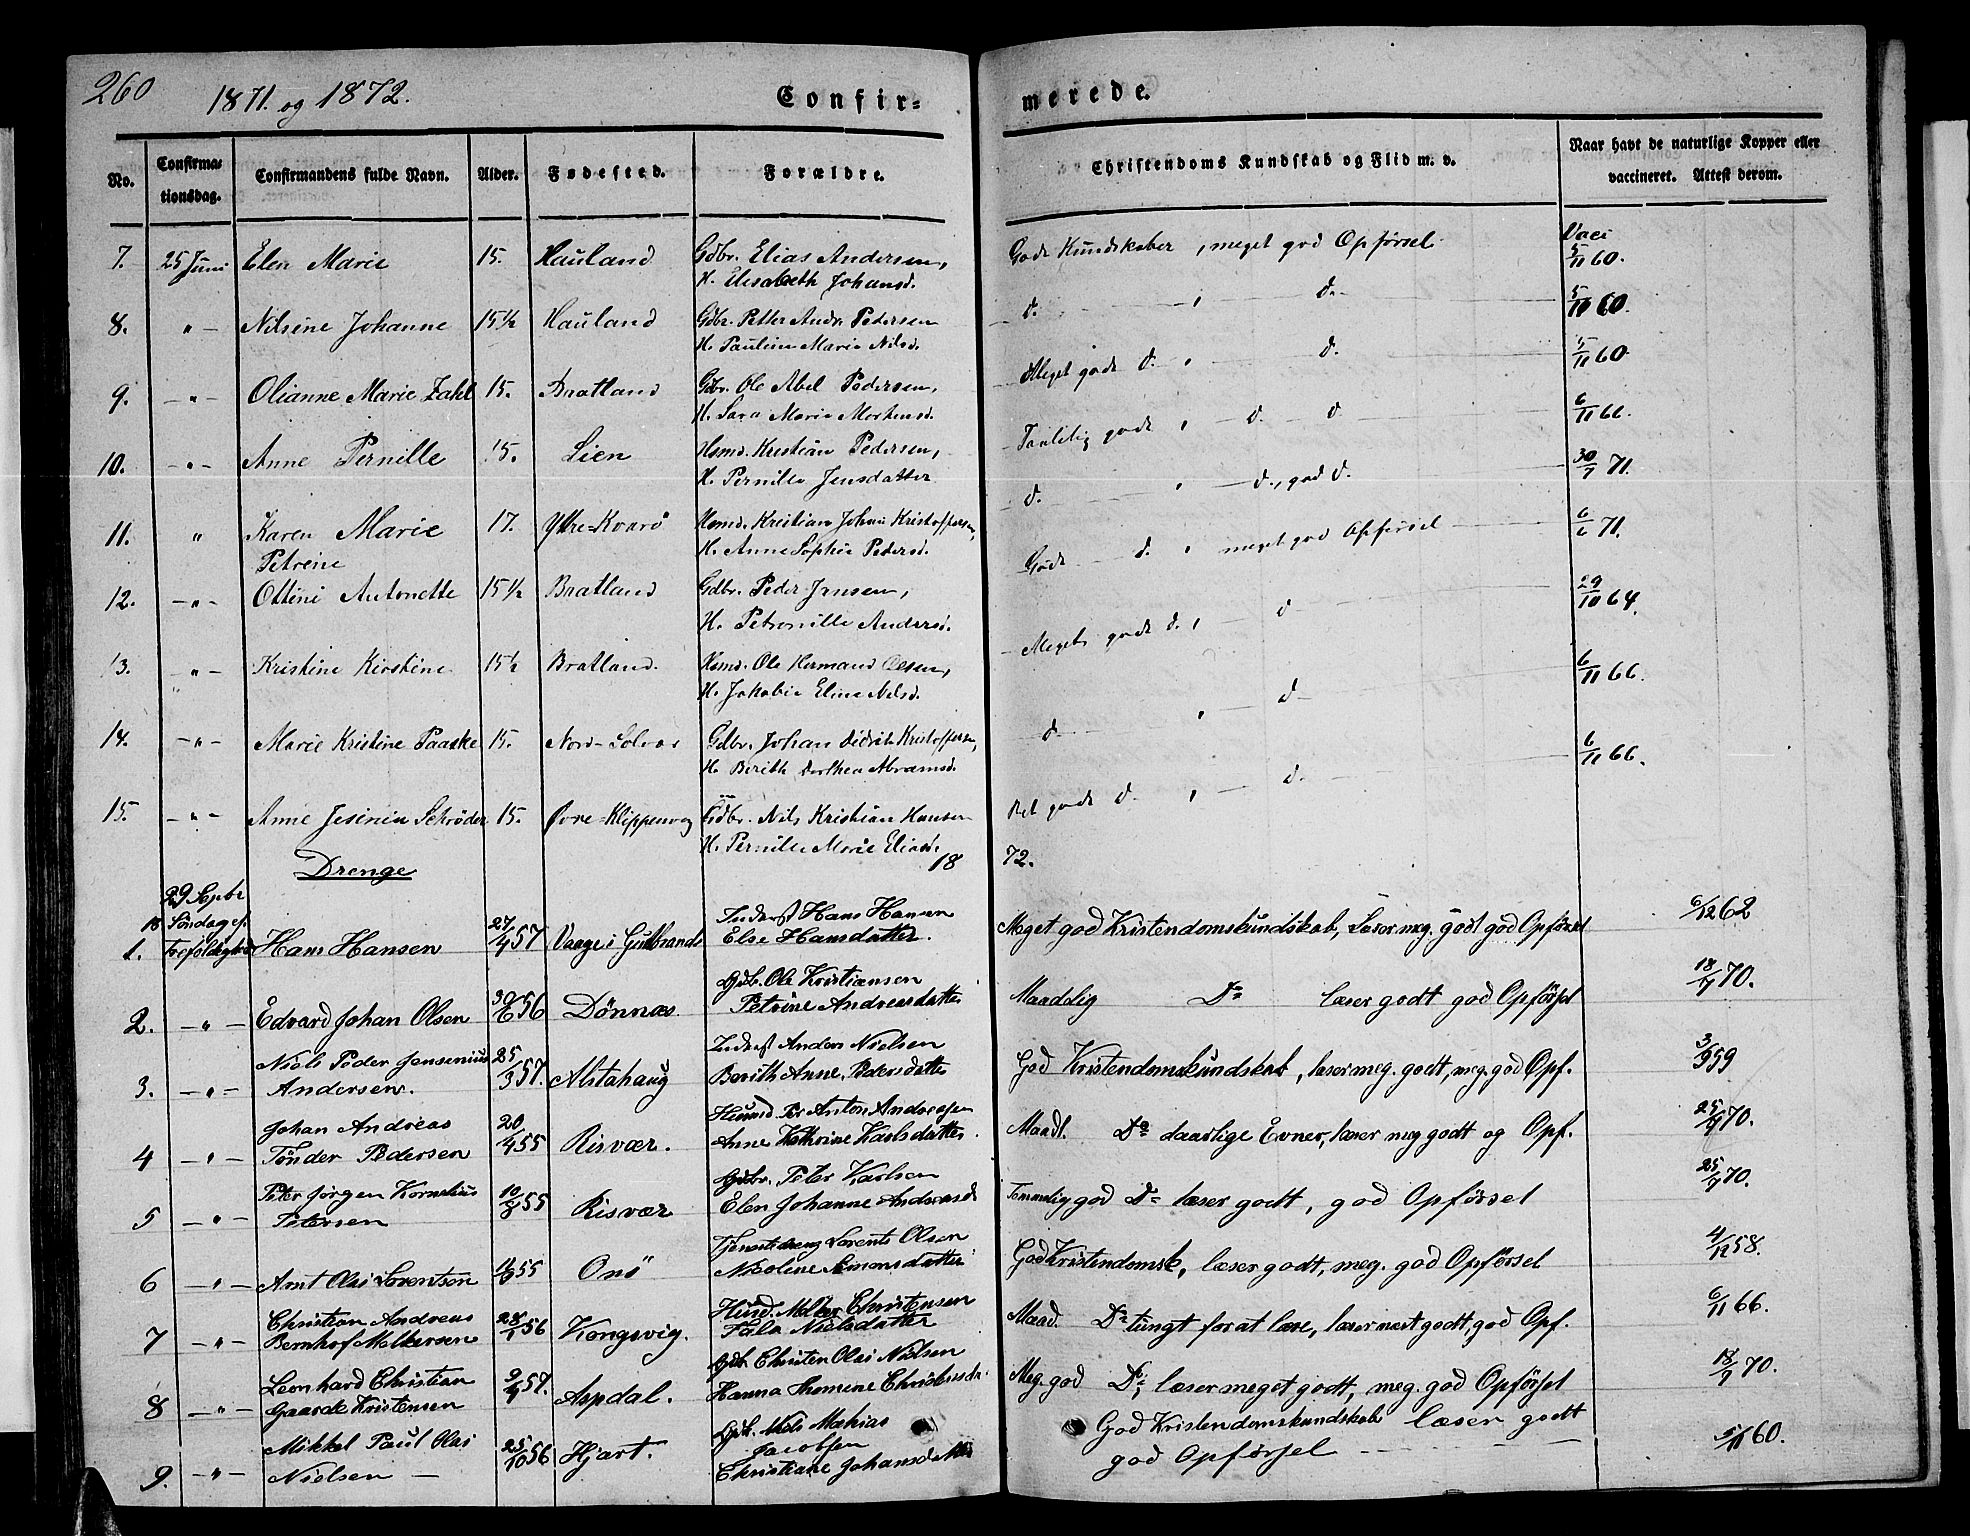 260
1871. og 1872.
Confirmerede.
No. Confirmationsdag. Confirmandens fulde Navn. Alder. Fødested. Forældre. Christendoms Kundskab og Flid m. v. Naar havt de naturlige Kopper eller vaccineret. Attest derom.
7. 25 Juni Elen Marie 15. Hauland Gdbr. Elias Andersen, Gode Kundskaber, meget god Opførsel Vacc 5/11 60.
H. Elisabeth Johansd.
8. -"- Nilsine Johanne 15½ Hauland Gdbr. Petter Andr Pedersen d. , d. 5/11 60.
H. Pauline Marie Nilsd.
9. -"- Olianne Marie Zahl 15. Bratland Gdbr. Ole Abel Pedersen, Meget gode d. , d. 5/11 60.
H. Sara Marie Mortensd.
10. -"- Anne Pernille 15. Lien Hsmd. Kristian Pedersen, Taalelig gode , d. d 6/11 66.
H. Pernille Jensdatter
11. " Karen Marie 17. Yttre-Kvarø Hsmd. Kristian Johan Kristoffersen, d. , d., god d. 30/7 71.
Petrine H. Anne Sophie Pedersd.
12. -"- Ottine Antonette 15½ Bratland Gdbr. Peder Jensen, Gode d. , meget god Opførsel 6/6 71.
H. Petronille Andersd.
13. -"- Kristine Kirstine 15½ Bratland. Hsmd. Ole Hermand Olsen, Meget gode d. , d 29/10 64.
H. Jakobie Eline Nilsd.
14. -"- Marie Kristine Paaske 15. Nord-Solvær Gdbr. Johan Didrik Kristoffersen, d , d 6/11 66.
H. Berith Dorthea Abramsd.
15. -"- Anne Jesine Schrøder 15. Øvre-Klippenvag Gdbr. Nils Kristian Hansen Ret gode d. , d. 6/11 66.
H. Pernille Marie Eliasd.
Drenge 1872.
29 Septbr
18 Søndag ef. Inderst Hans Hansen
1. Trefoldighed Hans Hansen 27/4 57 Vaage i Gulbrands Else Hansdatter. Meget god Kristendomskundskab, læser meg. godt god Opførsel 6/12 62
Gdb. Ole Kristiansen
2. -"- Edvard Johan Olsen 30/6 56 Dönnæs Petrine Andreasdatter Maadelig Do læser godt god Opførsel 18/7 70.
Niels Peder Jensenius Inderst Anders Nielsen
3. -"- Andersen. 25/3 57. Alstahaug Berith Anne Pedersdatter God Kristendomskundskab, læser meg. godt, meg. god Opf. 3/9 59
Johan Andreas Husmd Per Anton Andreassen
4 -"- Tönder Pedersen 20/4 55 Risvær. Anne Kathrine Karlsdatter. Maadl. Do daarlige Evner, læser meg godt og Opf. 25/7 70.
Peter Jørgen Kornelius Gdbr. Peter Karlsen
5 -"- Petersen 10/8 55 Risvær Elen Johanne Andreasd. Temmelig god Do læser godt, god Opførsel 25/7 70.
Tjenestedreng Lorents Olsen
6 -"- Arnt Olai Lorentsen 11/9 55 Onö Nicoline Simonsdatter God Kristendomsk, læser godt, meg. god Opførsel 4/12 58.
Christian Andreas Husd. Melker Christensen
7 -"- Bernhof Melkersen 28/1 56 Kongsvig. Tala Nielsdatter Maad. Do tungt for at læse, læser nært godt, god Opf. 6/11 66.
Leonhard Christian Gdb Christen Olai Nielsen
8 -"- Gaarde Kristensen 2/4 57. Aspdal. Hanna Thomine Christensd. Meg. god Do, læser meget godt, meg. god Opførsel 18/7 70.
Mikkel Paul Olai Gdb. Niels Mathias God Kristendomskundskab læser godt
Jacobsen
9. -"- Nielsen 25/10 56 Hjart. Christiane Johansdatter god Opførsel 5/11 60.